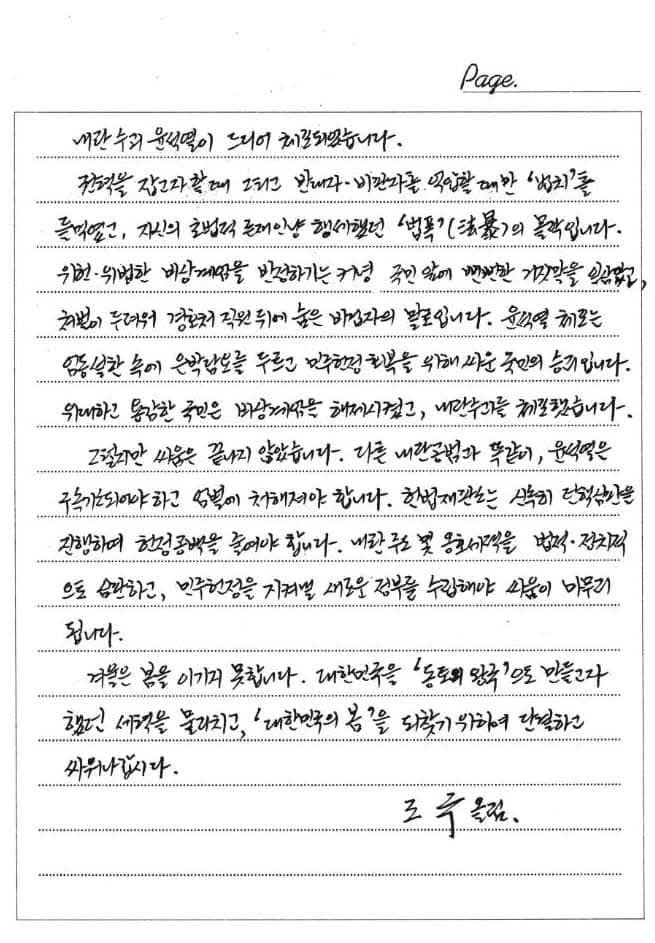 Page.
내란 수괴 윤석열이 드디어 체포되었습니다.
권력을 잡고자 할 때 그리고 반대자·비판자를 억압할 때만 '법치'를
들먹였고, 자신의 초법적 존재인냥 행세했던 '법폭'(法暴)의 몰락입니다.
위헌·위법한 비상계엄을 반성하기는커녕 국민 앞에 뻔뻔한 거짓말을 일삼았고,
처벌이 두려워 경호처 직원 뒤에 숨은 비겁자의 말로입니다. 윤석열 체포는
엄동설한 속에 은박담요를 두르고 민주헌정 회복을 위해 싸운 국민의 승리입니다.
위대하고 용감한 국민은 비상계엄을 해제시켰고, 내란수괴를 체포했습니다.
그렇지만 싸움은 끝나지 않았습니다. 다른 내란공범과 똑같이, 윤석열은
구속기소되어야 하고 엄벌에 처해져야 합니다. 헌법재판소는 신속히 탄핵심판을
진행하며 헌정공백을 줄여야 합니다. 내란 주도 및 옹호세력을 법적·정치적
으로 심판하고, 민주헌정을 지켜낼 새로운 정부를 수립해야 싸움이 마무리
됩니다.
겨울은 봄을 이기지 못합니다. 대한민국을 '동토의 왕국'으로 만들고자
했던 세력을 물리치고, '대한민국의 봄'을 되찾기 위하여 단결하고
싸워나갑시다.
조국 올림.